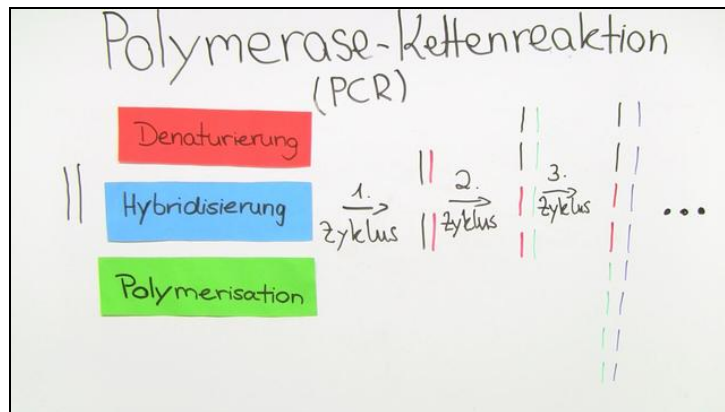 Polymerase-Kettenreaktion
(PCR)
Denaturierung
Hybridisierung
Polymerisation
1.
Zyklus
2.
Zyklus
3.
Zyklus
...